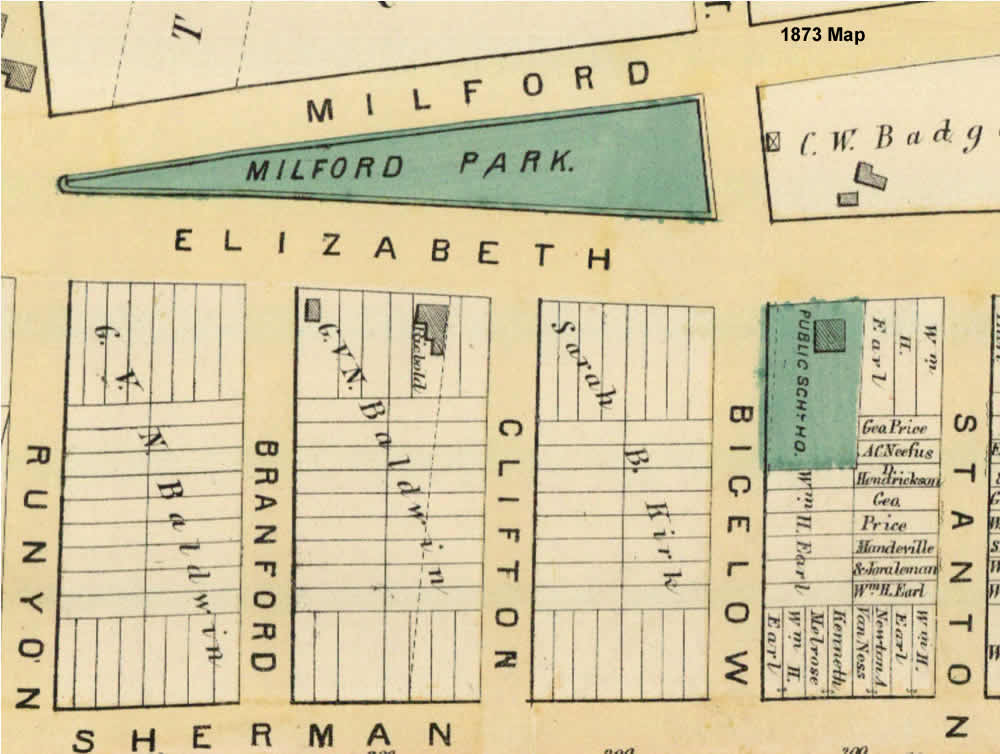 1873 Map
T
T.
MILFORD
MILFORD PARK.
C. W. Badg
ELIZABETH
RUNYON
G. V. N. Baldwin
BRANFORD
G. V. N. Baldwin
Riebold
CLIFTON
Sarah B. Kirk
BIGELOW
PUBLIC SCH. HO.
Wm. H. Earl
Wm H. Earl
Geo. Price
A.C. Neefus
Hendrickson
Geo.
Price
Mandeville
& Joraleman
Wm. H. Earl
Wm H. Earl
Melrose
Kenneth,
Van Ness
Newton A,
Earl
Wm H.
STANTON
SHERMAN
200
200